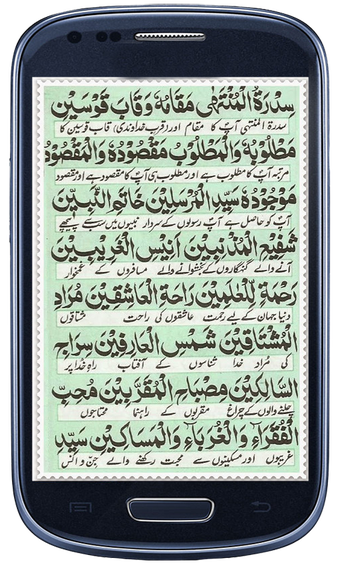 سِدْرَةُ الْمُنْتَهٰى مَقَامُهٗ وَقَابَ قَوْسَيْنِ
سدرۃ المنتہی آپؐ کا مقام اور (قرب خداوندی) قاب قوسین کا
مَطْلُوْبُهٗ وَالْمَطْلُوْبُ مَقْصُوْدُهٗ وَالْمَقْصُوْدُ
مرتبہ آپؐ کا مطلوب ہے اور مطلوب ہی آپؐ کا مقصود ہے اور مقصود
مَوْجُوْدُهٗ سَيِّدِ الْمُرْسَلِيْنَ خَاتَمِ النَّبِيّٖنَ
آپؐ کو حاصل ہے آپؐ رسولوں کے سردار نبیوں میں سب سے پیچھے
شَفِيْعِ الْمُذْنِبِيْنَ اَنِيْسِ الْغَرِيْبِيْنَ
آنے والے گنہگاروں کے بخشوانے والے مسافروں کے غمخوار
رَحْمَةٍ لِّلْعٰلَمِيْنَ رَاحَةِ الْعَاشِقِيْنَ مُرَادِ
دنیا جہان کے لیے رحمت عاشقوں کی راحت مشتاقوں
الْمُشْتَاقِيْنَ شَمْسِ الْعَارِفِيْنَ سِرَاجِ
کی مُراد خدا شناسوں کے آفتاب راہِ خدا پر
السَّالِكِيْنَ مِصْبَاحِ الْمُقَرَّبِيْنَ مُحِبِّ
چلنے والوں کے چراغ مقربوں کے راہنما محتاجوں
الْفُقَرَآءِ وَالْغُرَبَآءِ وَالْمَسَاكِيْنَ سَيِّدِ
غریبوں اور مسکینوں سے محبت رکھنے والے جنّ و انس